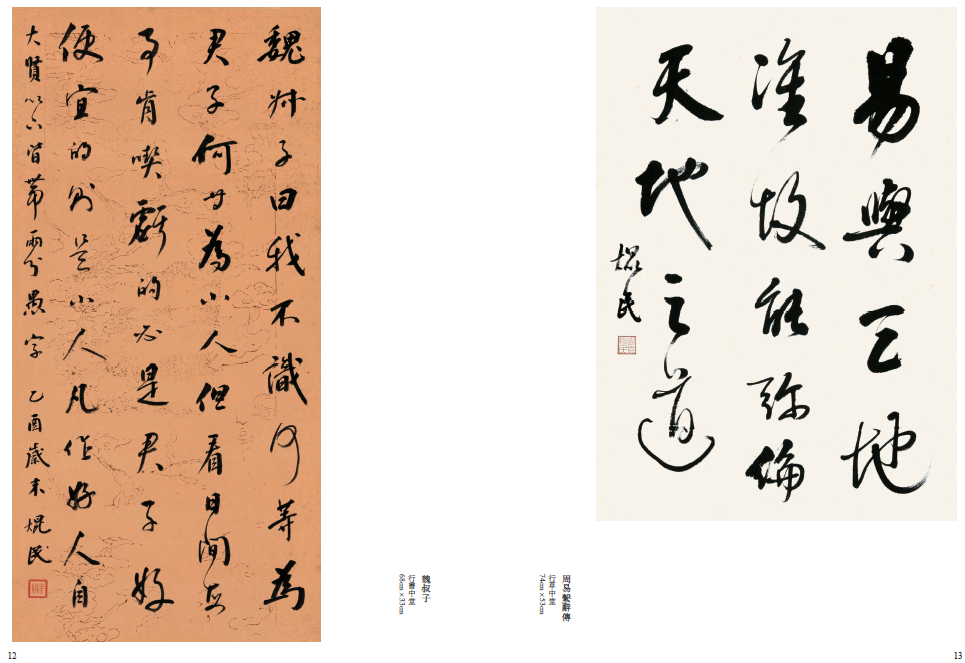 魏叔子曰我不識何等為
君子何為小人但看日間每
事肯喫虧的必是君子好
便宜的則是小人凡作好人自
大賢以下皆帶兩分愚字 乙酉歲末 焜民
魏叔子
行書中堂
68cm×33cm
12
易與天地
准故能弥綸
天地之道
焜民
周易繫辭傳
行草中堂
74cm×53cm
13